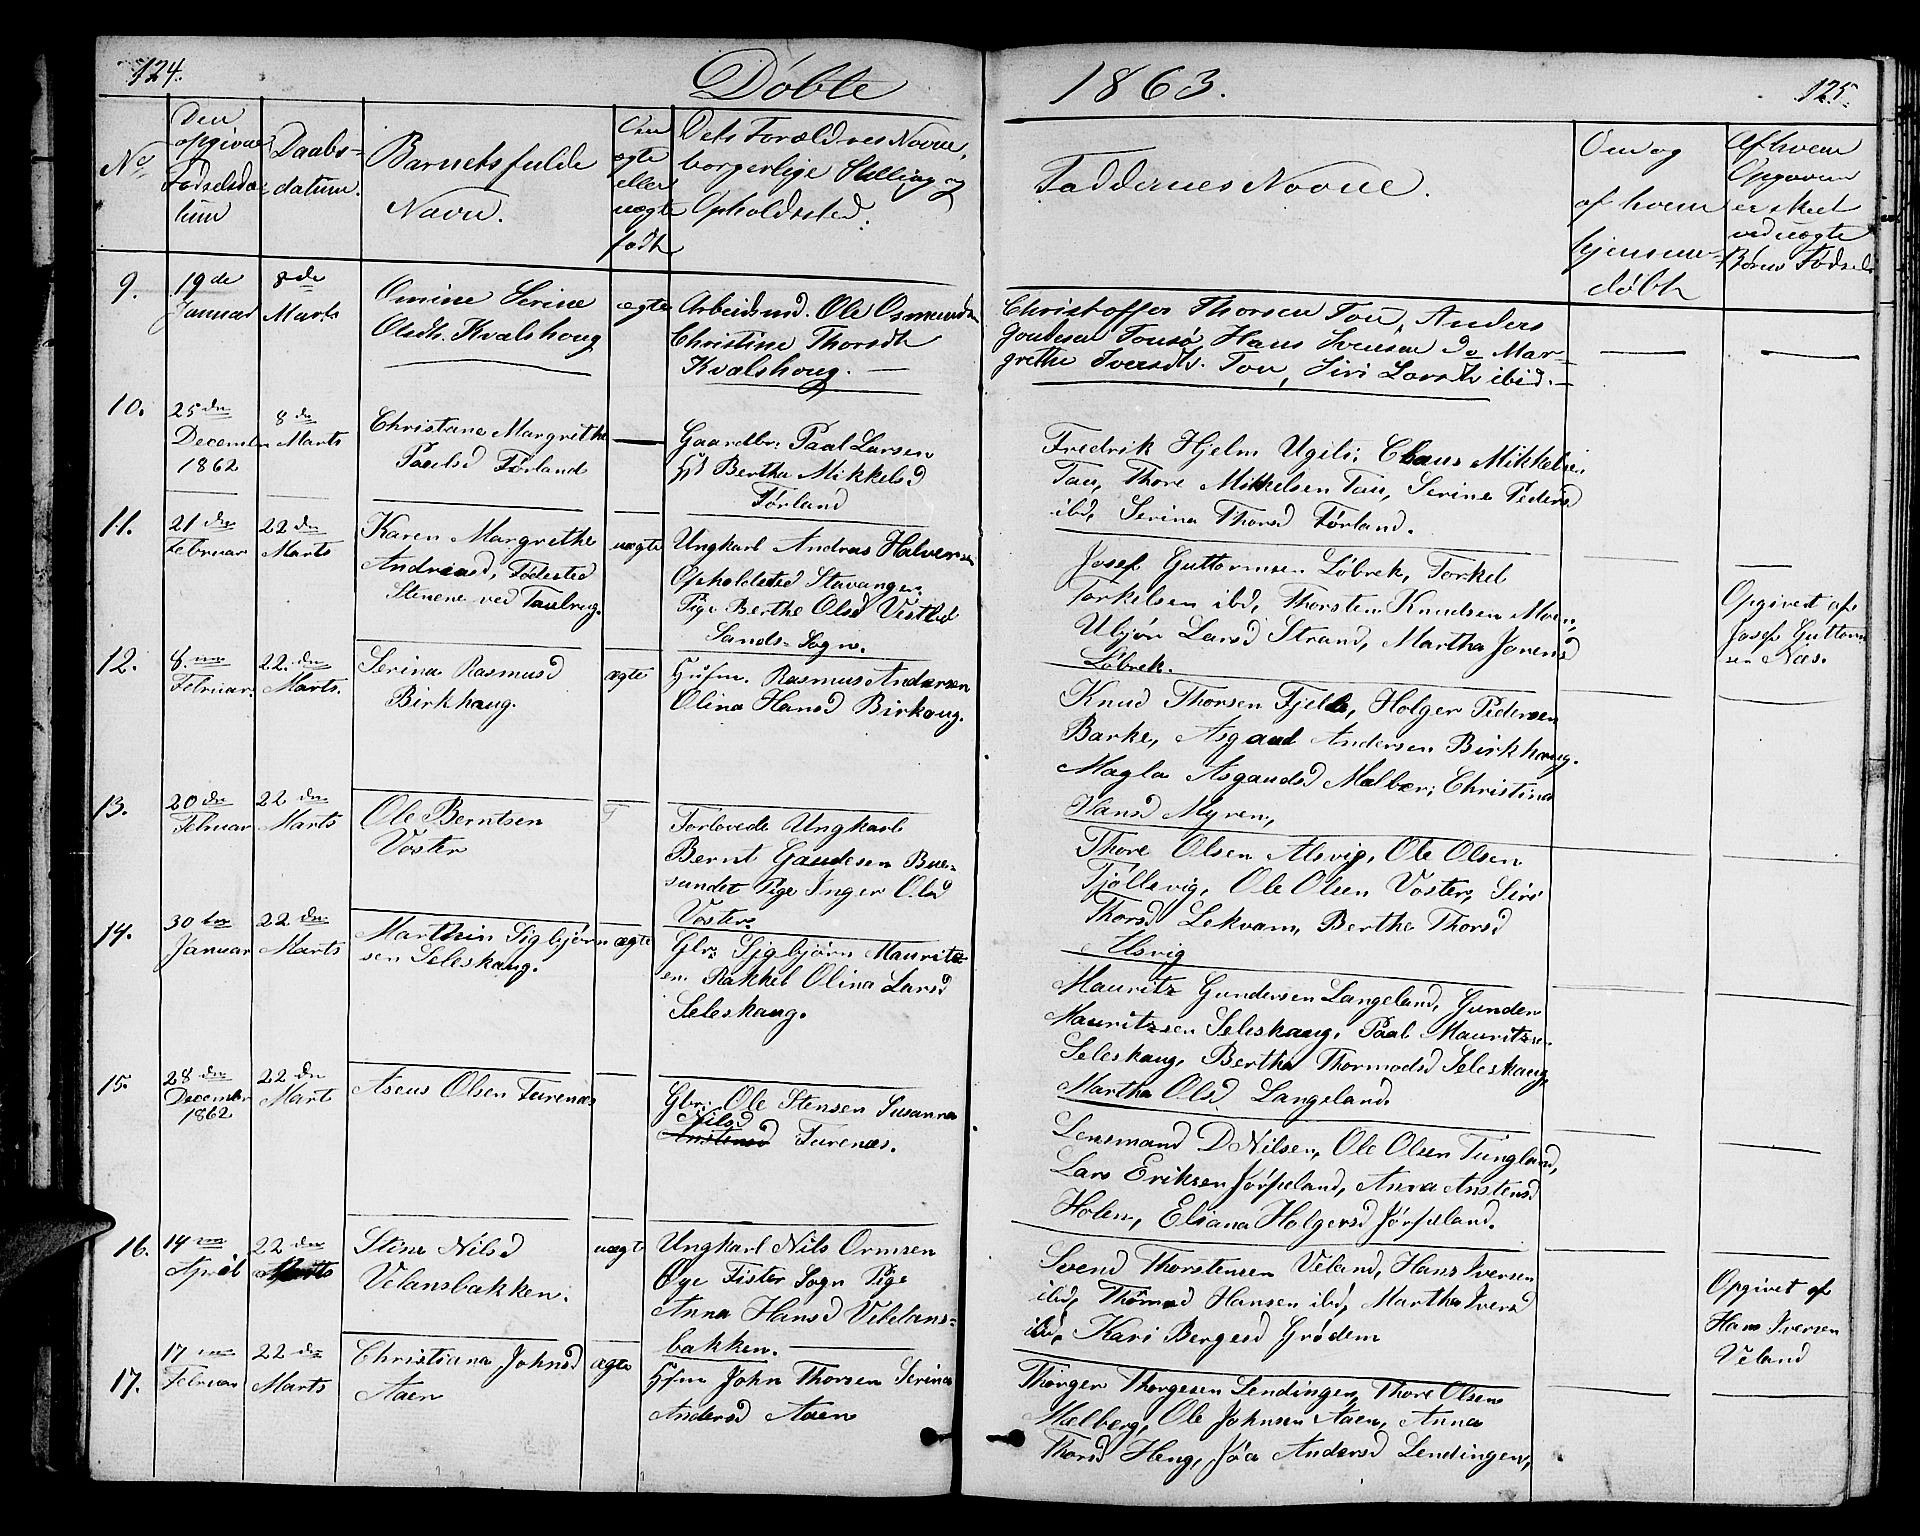 124.
Döbte
1863.
125.
No
Den opgivne Fødselsdatum
Daabsdatum.
Barnets fulde Navn.
Om ægte eller uægte født
Dets Forældres Navne, borgerlige Stilling og Opholdsted.
Faddernes Navne.
Om og af hvem hjemmedöbt
Af hvem Opgaven er skeet ved uægte Børns Fødsel
9.
19de Januar
8de Marts
Omine Serine
Olsdt. Kvalshoug
ægte
Arbeidsmd. Ole Osmundsen
Christine Thorsdt
Kvalshoug. —
Christoffer Thorsen Tou, Anders
Goudesen Tousø, Hans Svensen do Mar-
grethe Iversdt. Tou, Siri Larsdt ibid. —
10.
25de December 1862
8de Marts
Christane Margrethe
Paulsd Førland
—
Gaardbr: Paal Larsen
Bertha Mikkelsd
Førland
Fredrik Hjelm Ugils: Claus Mikkelsen
Tau, Thore Mikkelsen Tau, Serine Pedersd
ibd, Serina Thorsd Førland.
11.
21de Februar
22de Marts
Karen Margrethe
Andreasd, Fødested
Stenene ved Taubrug.
uægte
Ungkarl Andreas Halversen
Opholdsted Stavanger.
Pige Berthe Olsd Vestbø
Sands-Sogn.
Josef Guttormsen Løbrek, Torkel
Torkelsen ibd, Thorsten Knudsen Moen,
Ubjør Larsd Strand, Martha Jonensd
Løbrek.
Opgivet af
Josef Guttorm
sen Næs.
12.
8de Februar.
22de Marts.
Serina Rasmusd
Birkhaug.
ægte
Husm. Rasmus Andersen
Olina Hansd Birkaug.
Knud Thorsen Fjelde, Holger Pedersen
Barke, Asgaud Andersen Birkhaug.
Magla Asgaudsd Mælber; Christina
Hansd Myren,
13.
20de Februar
22de Marts
Ole Berntsen
Voster
Forlovede Ungkarl
Bernt Gaudesen Bue-
sundet Pige Inger Olsd
Voster
Thore Olsen Alsvig, Ole Olsen
Fjöllevig, Ole Olsen Voster, Siri
Thorsd Lekvam, Berthe Thorsd
Alsvig
14.
30te Januar
22de Marts
Marthin Sigbjörn
sen Seleskaug.
ægte
Gbr. Sigbjørn Mauritz
en Rakkel Olina Larsd
Seleskaug.
Mauritz Gundersen Langeland, Gunder
Mauritzsen Seleskaug, Paal Mauritzsen
Seleskaug, Bertha Thormodsd Seleskaug,
Martha Olsd. Langeland
15.
28de December 1862
22de Marts
Aseus Olsen Furenæs
—
Gbr: Ole Stensen Susanna
Nilsd
Austensd Furenæs.
Lensmand D Nilsen, Ole Olsen Tungland,
Lars Eriksen Jørpeland, Anna Austensd
Holen, Eliana Holgersd Jørpeland.
16.
14de April
22de Marts
Stine Nilsd
Velansbakken.
uægte
Ungkarl Nils Ormsen
Øye Fister Sogn Pige
Anna Hansd Velelans-
bakken.
Svend Thorstensen Veland, Hans Iversen
ibd, Hansen ibd, Martha Iversd
ibd, Kari Bergesd Grødem
Opgivet af
Hans Iversen
Veland
17.
17de Februar
22de Marts
Christiana Johnsd
Aaen
ægte
Hsm John Thorsen Serina
Andersd Aaen
Thorger Thorgesen Lendingen, Thore Olsen
Mælberg, Ole Johnsen Aaen, Anna
Thorsd Heng, Jöa Andersd Lendingen,